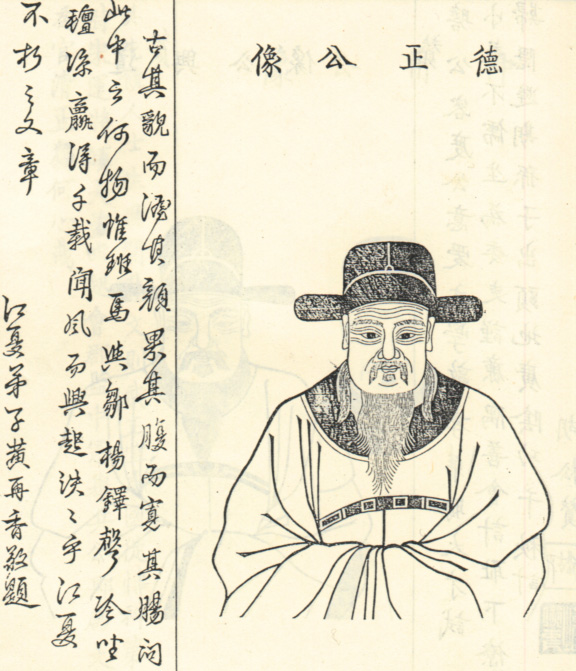 德正公像
古其貌而其顏果其腹而寬其腸问
此中之何物惟班馬與鄒楊鐸聲冷坐
壇際贏得千載聞風而興起泱〻乎江夏
不朽之文章
江夏弟子黃再香敬題